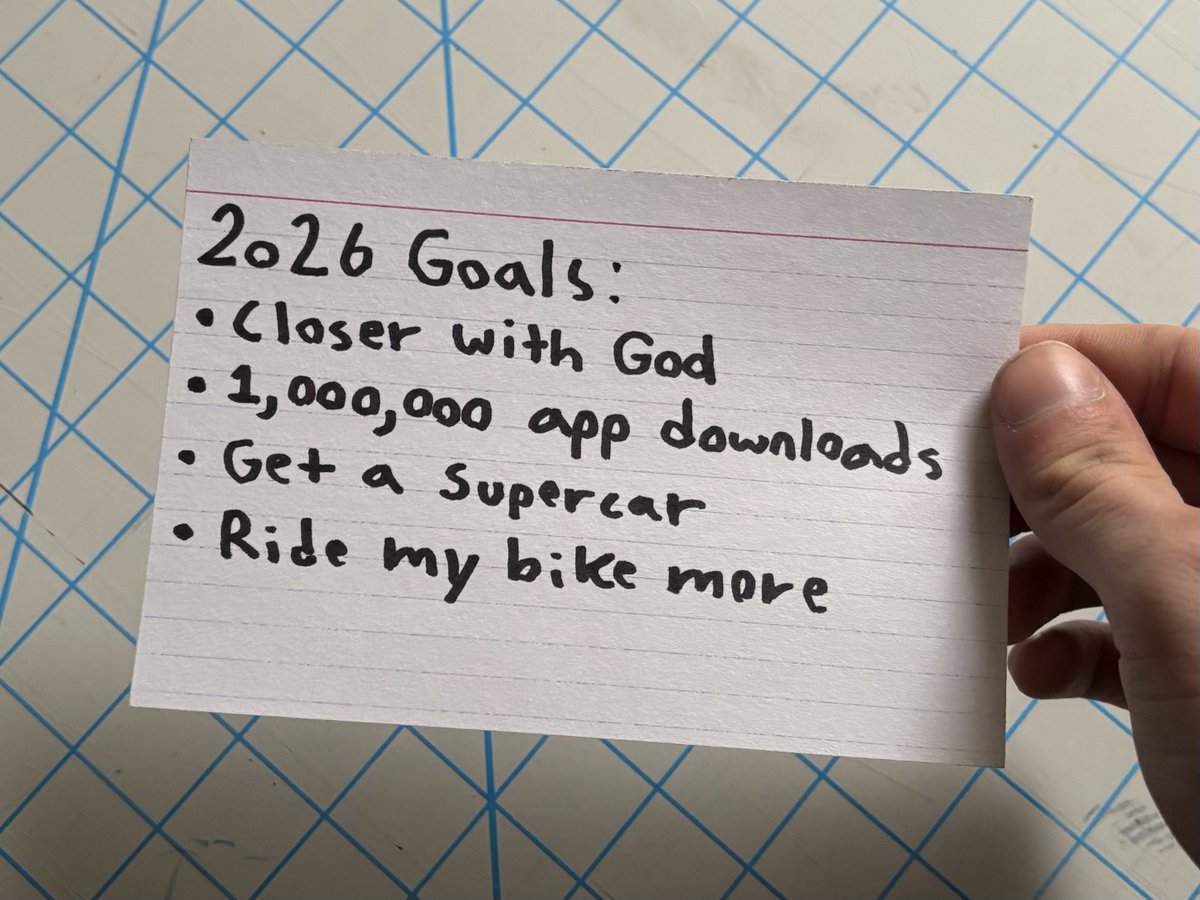 2026 Goals:
• Closer with God
• 1,000,000 app downloads
• Get a supercar
• Ride my bike more